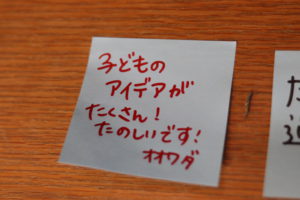 子どもの
アイデアが
たくさん!
たのしいです!
オオワダ